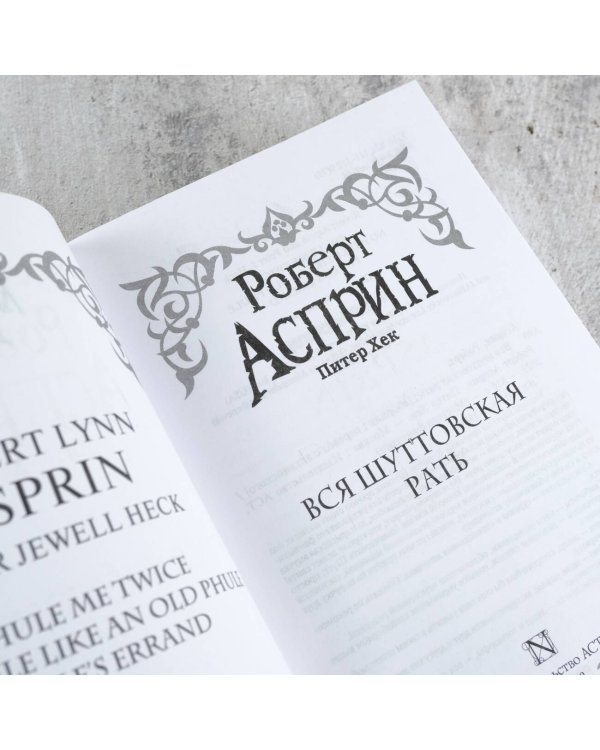 ERT LYNN
SPRIN
R JEWELL HECK
HULE ME TWICE
LE LIKE AN OLD PHULE
LE'S ERRAND
Роберт
Асприн
Питер Хек
ВСЯ ШУТТОВСКАЯ
РАТЬ
ЬСТВО АСТ